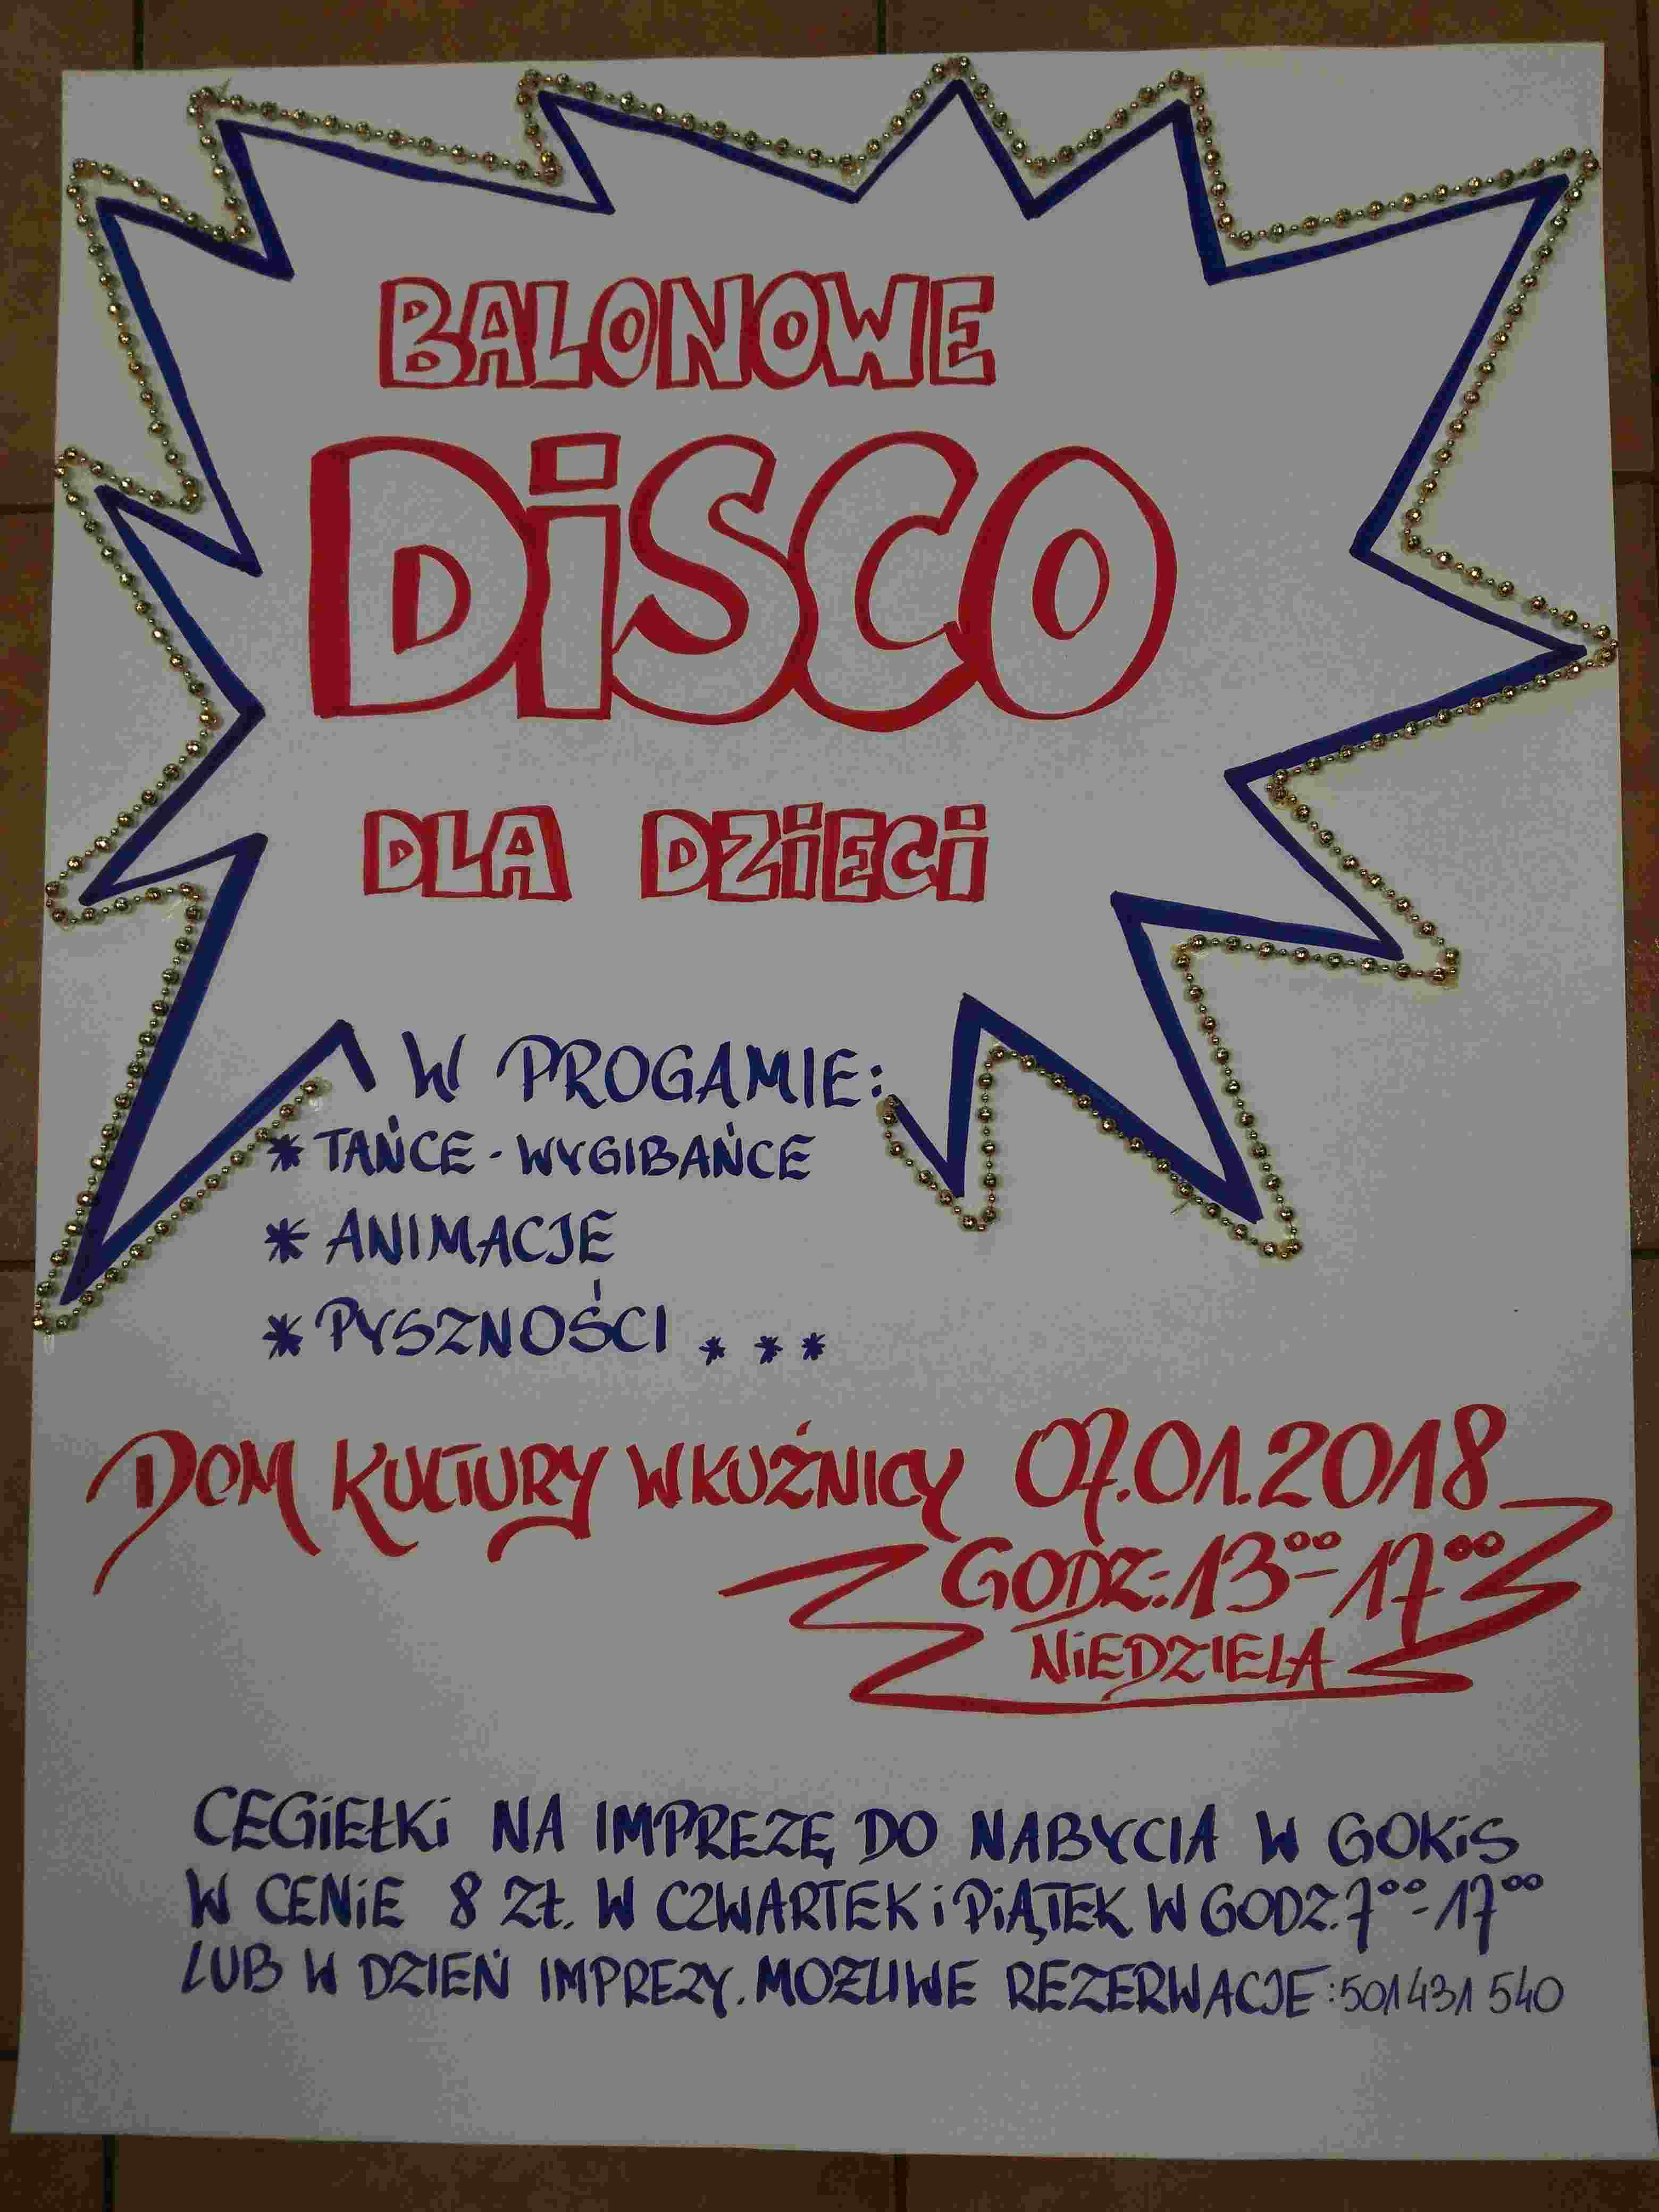 BALONOWE
DiSCO
DLA DZiECi
W PROGAMIE:
* TAŃCE - WYGIBAŃCE
* ANIMACJE
* PYSZNOŚCI * * *
DOM KULTURY W KUŹNICY 07.01.2018
GODZ: 13⁰⁰-17⁰⁰
NiEDZIELA
CEGiEŁKi NA IMPREZĘ DO NABYCIA W GOKiS
W CENiE 8 ZŁ. W CZWARTEK i PiĄTEK W GODZ. 7⁰⁰-17⁰⁰
LUB W DZIEŃ IMPREZY. MOŻLIWE REZERWACJE: 501 431 540